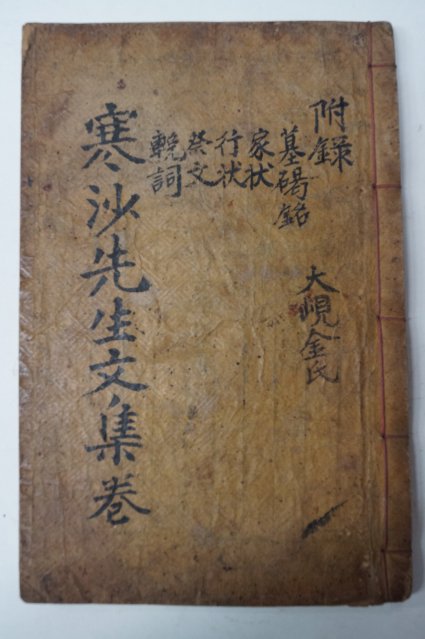 附錄
墓碣銘
家狀
行狀
祭文
輓詞
大峴金氏
寒沙先生文集卷